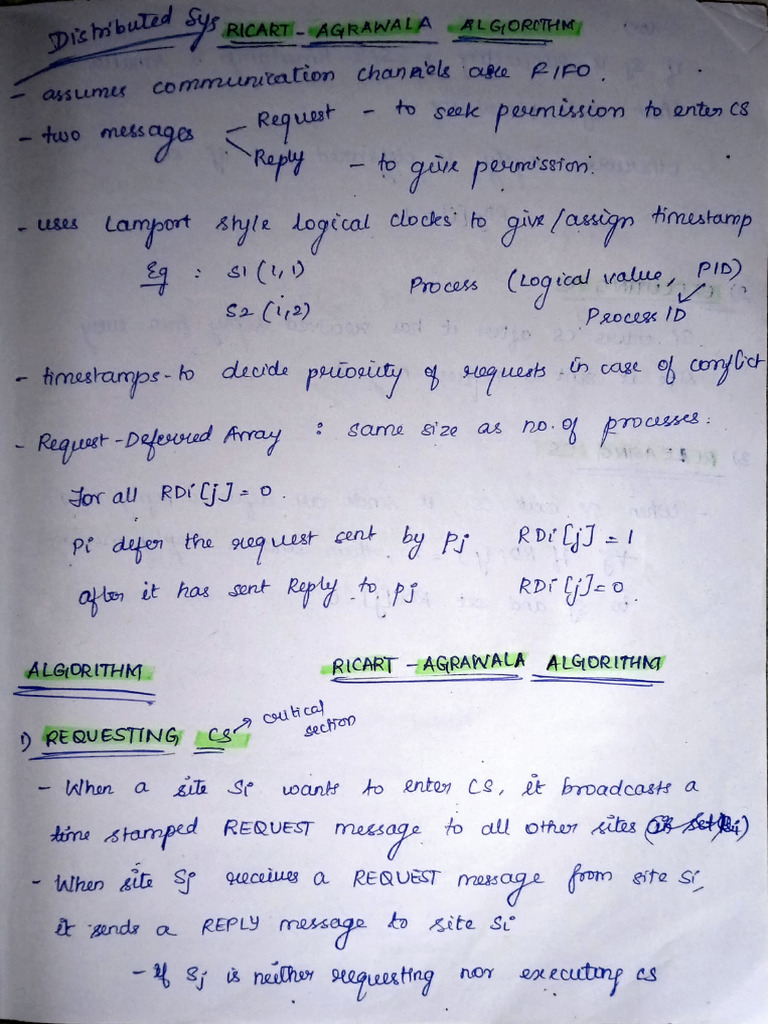 Distributed Sys RICART - AGRAWALA ALGORITHM
- assumes communication channels are FIFO.
- two messages Request - to seek permission to enter CS
Reply - to give permission.
- uses Lamport style logical clocks to give/assign timestamp
Eg : S1 (1,1) Process (Logical value, PID)
S2 (1,2) Process ID
- timestamps - to decide priority of requests in case of conflict
- Request-Deferred Array : same size as no. of processes.
For all RDi[j] = 0.
Pi defer the request sent by Pj RDi[j] = 1
after it has sent Reply to Pj RDi[j] = 0.
ALGORITHM RICART - AGRAWALA ALGORITHM
1) REQUESTING CS critical section
- When a site Si wants to enter CS, it broadcasts a
time stamped REQUEST message to all other sites
- When site Sj receives a REQUEST message from site Si,
it sends a REPLY message to site Si
- if Sj is neither requesting nor executing CS